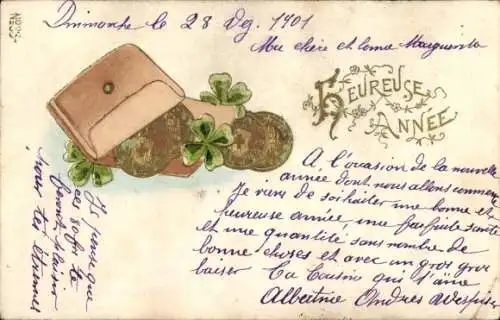 Dimanche le 28 Dez. 1901
Ma chère et bonne Marguerite
HEUREUSE
ANNÉE
A l'occasion de la nouvelle
année dont nous allons commencer
Je viens de souhaiter une bonne et
heureuse année, une parfaite santé
et une quantité sans nombre de
bonne choses et avec un gros gros
baiser Ta Cousine qui t'aime
Albertine Andres
Je pense que
ces 80 ffr te
feront plaisir
pour tes étrennes